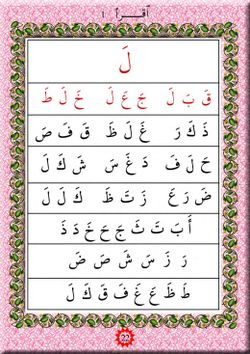 اقرأ ١
لَ
قَ بَ لَ جَ عَ لَ خَ لَ طَ
ذَ كَ رَ غَ لَ ظَ قَ فَ صَ
حَ لَ فَ دَ غَ سَ شَ كَ لَ
ضَ رَ عَ زَ تَ ظَ كَ لَ لَ
أَ بَ تَ ثَ جَ حَ خَ دَ ذَ
رَ زَ سَ شَ صَ ضَ
طَ ظَ عَ غَ فَ قَ كَ لَ
22